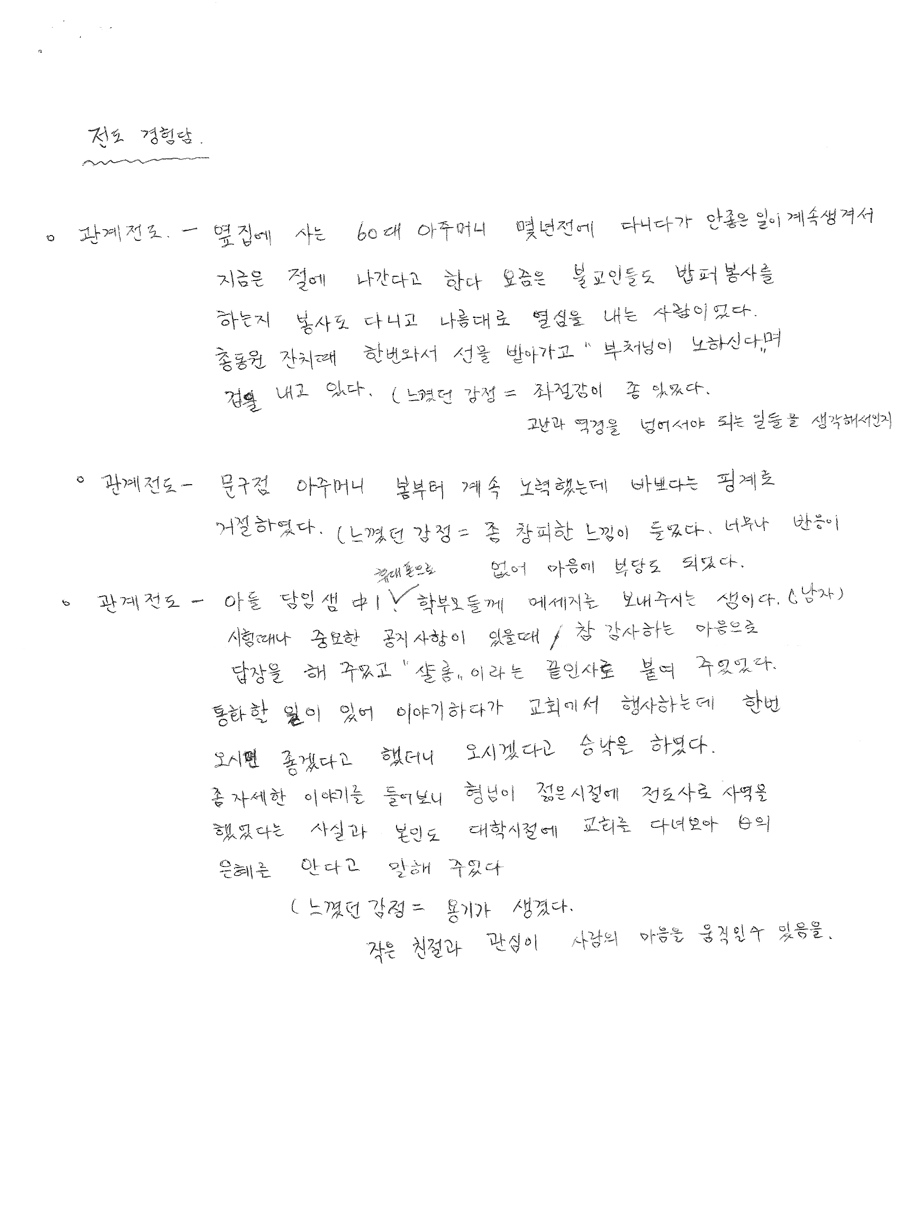 전도 경험담.
○ 관계전도. - 옆집에 사는 60대 아주머니 몇년전에 다니다가 안좋은 일이 계속생겨서
지금은 절에 나간다고 한다 요즘은 불교인들도 밥퍼봉사를
하는지 봉사도 다니고 나름대로 열심을 내는 사람이었다.
총동원 잔치때 한번와서 선물 받아가고 "부처님이 노하신다"며
겁을 내고 있다. (느꼈던 감정 = 좌절감이 좀 있었다.
고난과 역경을 넘어서야 되는 일들을 생각해서인지
○ 관계전도 - 문구점 아주머니 봄부터 계속 노력했는데 바쁘다는 핑계로
거절하였다. (느꼈던 감정 = 좀 창피한 느낌이 들었다. 너무나 반응이
없어 마음에 부담도 되었다.
휴대폰으로
○ 관계전도 - 아들 담임샘 中1 ✓ 학부모들께 메세지를 보내주시는 샘이다. (남자)
시험때나 중요한 공지사항이 있을때 / 참 감사하는 마음으로
답장을 해 주었고 "샬롬" 이라는 끝인사로 붙여 주었었다.
통화할 일이 있어 이야기하다가 교회에서 행사하는데 한번
오시면 좋겠다고 했더니 오시겠다고 승낙을 하였다.
좀 자세한 이야기를 들어보니 형님이 젊은시절에 전도사로 사역을
했었다는 사실과 본인도 대학시절에 교회를 다녀보아 의
은혜를 안다고 말해 주었다
(느꼈던 감정 = 용기가 생겼다.
작은 친절과 관심이 사람의 마음을 움직일수 있음을.